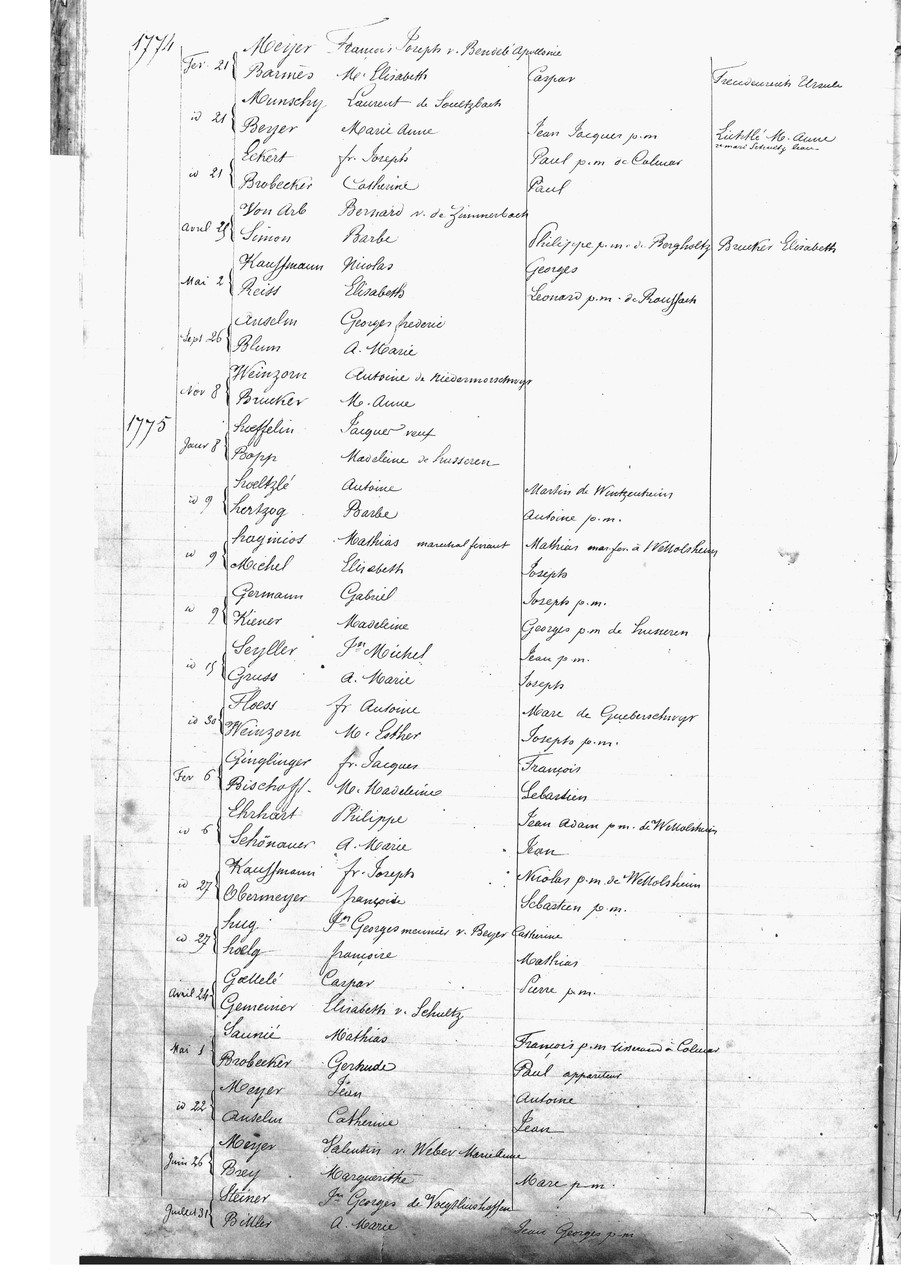 1774 Meyer François Joseph v. Bendelé Apollonie
Fev. 21 Barmès M. Elisabeth Caspar Freudenreich Ursule
Munschy Laurent de Soultzbach
id 21 Beyer Marie Anne Jean Jacques p.m Lichtlé M. Anne
remarié Schultz Jean
Eckert fr. Joseph Paul p.m de Colmar
id 21 Brobecker Catherine Paul
Von Arb Bernard v. de Zimmerbach
Avril 25 Simon Barbe Philippe p.m. de Bergholtz Brucker Elisabeth
Kauffmann Nicolas Georges
Mai 2 Reiss Elisabeth Léonard p.m. de Rouffach
Anselm Georges frédéric
Sept 26 Blum A. Marie
Weinzorn Antoine de Niedermorschwyr
Nov 8 Brucker M. Anne
1775 hoeffelin Jacques veuf
Janv 8 Bopp Madeleine de husseren
hoeltzlé Antoine Martin de Wintzenheim
id 9 hertzog Barbe Antoine p.m.
haginios Mathias marechal ferrant Mathias mar. fer. à Wettolsheim
id 9 Michel Elisabeth Joseph
Germann Gabriel Joseph p.m.
id 9 Kiener Madeleine Georges p.m de husseren
Seyller Jn Michel Jean p.m.
id 15 Gruss A. Marie Joseph
Floess fr Antoine Marc de Gueberschwyr
id 30 Weinzorn M. Esther Joseph p.m.
Ginglinger fr. Jacques François
Fev 6 Bischoff. M. Madeleine Sebastien
Ehrhart Philippe Jean Adam p.m. de Wettolsheim
id 6 Schönauer A. Marie Jean
Kauffmann fr. Joseph Nicolas p.m. de Wettolsheim
id 27 Obermeyer françoise Sebastien p.m.
hug Jn Georges meunier v. Beyer Catherine
id 27 hoelg françoise Mathias
Gottelé Caspar Pierre p.m.
Avril 24 Gemeiner Elisabeth v. Schultz
Saunié Mathias François p.m tisserand à Colmar
Mai 1 Brobecker Gertrude Paul appariteur
Meyer Jean Antoine
id 22 Anselm Catherine Jean
Meyer Valentin v. Weber Marie Anne
Juin 26 Brey Marguerithe Marc p.m.
Steiner Jn Georges de Voegtlinshoffen
Juillet 31 Bittler A. Marie Jean Georges p.m